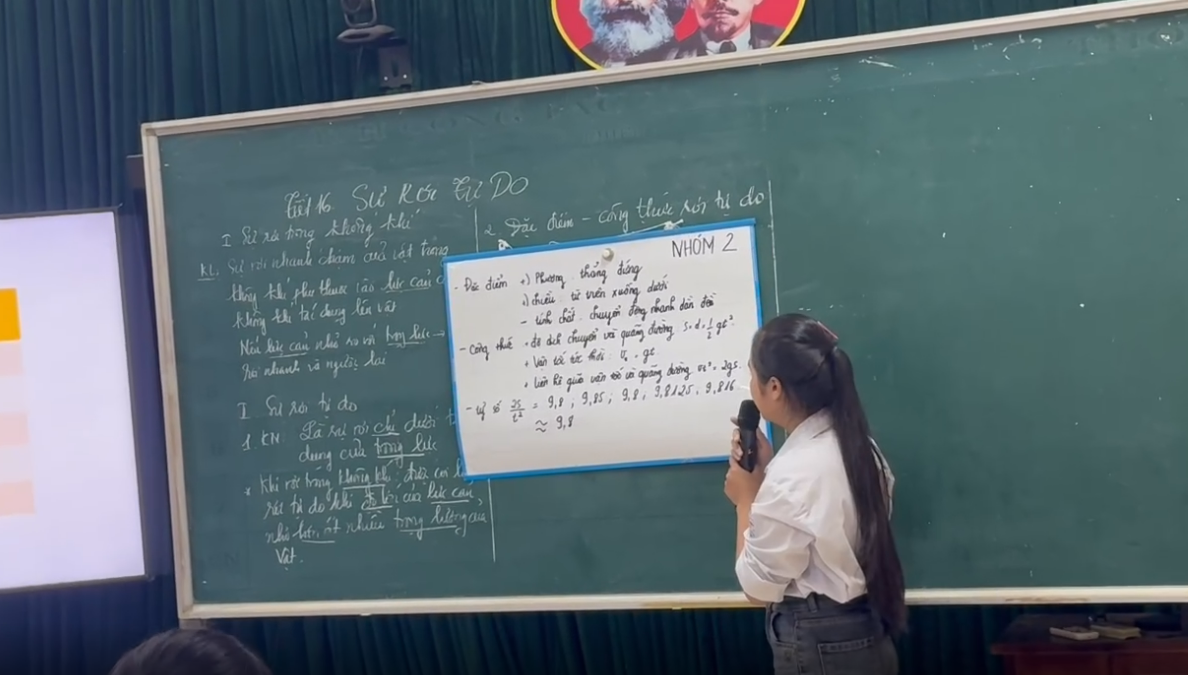 Tiết 16. SỰ RƠI TỰ DO
I Sự rơi trong không khí
KL: Sự rơi nhanh chậm của vật trong
không khí phụ thuộc vào lực cản
không khí tác dụng lên vật
Nếu lực cản nhỏ so với trọng lực →
rơi nhanh và ngược lại
II. Sự rơi tự do
1. KN: Là sự rơi chỉ dưới
dụng của trọng lực
* Khi rơi trong không khí, được coi
rơi tự do khi độ lớn của lực cản
nhỏ hơn rất nhiều trọng lượng của
vật.
2. Đặc điểm - công thức rơi tự do
NHÓM 2
- Đặc điểm +) Phương thẳng đứng
+) chiều: từ trên xuống dưới
- tính chất: chuyển động nhanh dần đều
- Công thức + độ dịch chuyển và quãng đường S=d=1/2 gt²
+ Vận tốc tức thời: vₜ = gt.
+ Liên hệ giữa vận tốc và quãng đường vt² = 2gs.
- Tỷ số 2S/t² = 9,8 ; 9,85 ; 9,8 ; 9,8125 ; 9,816
≈ 9,8